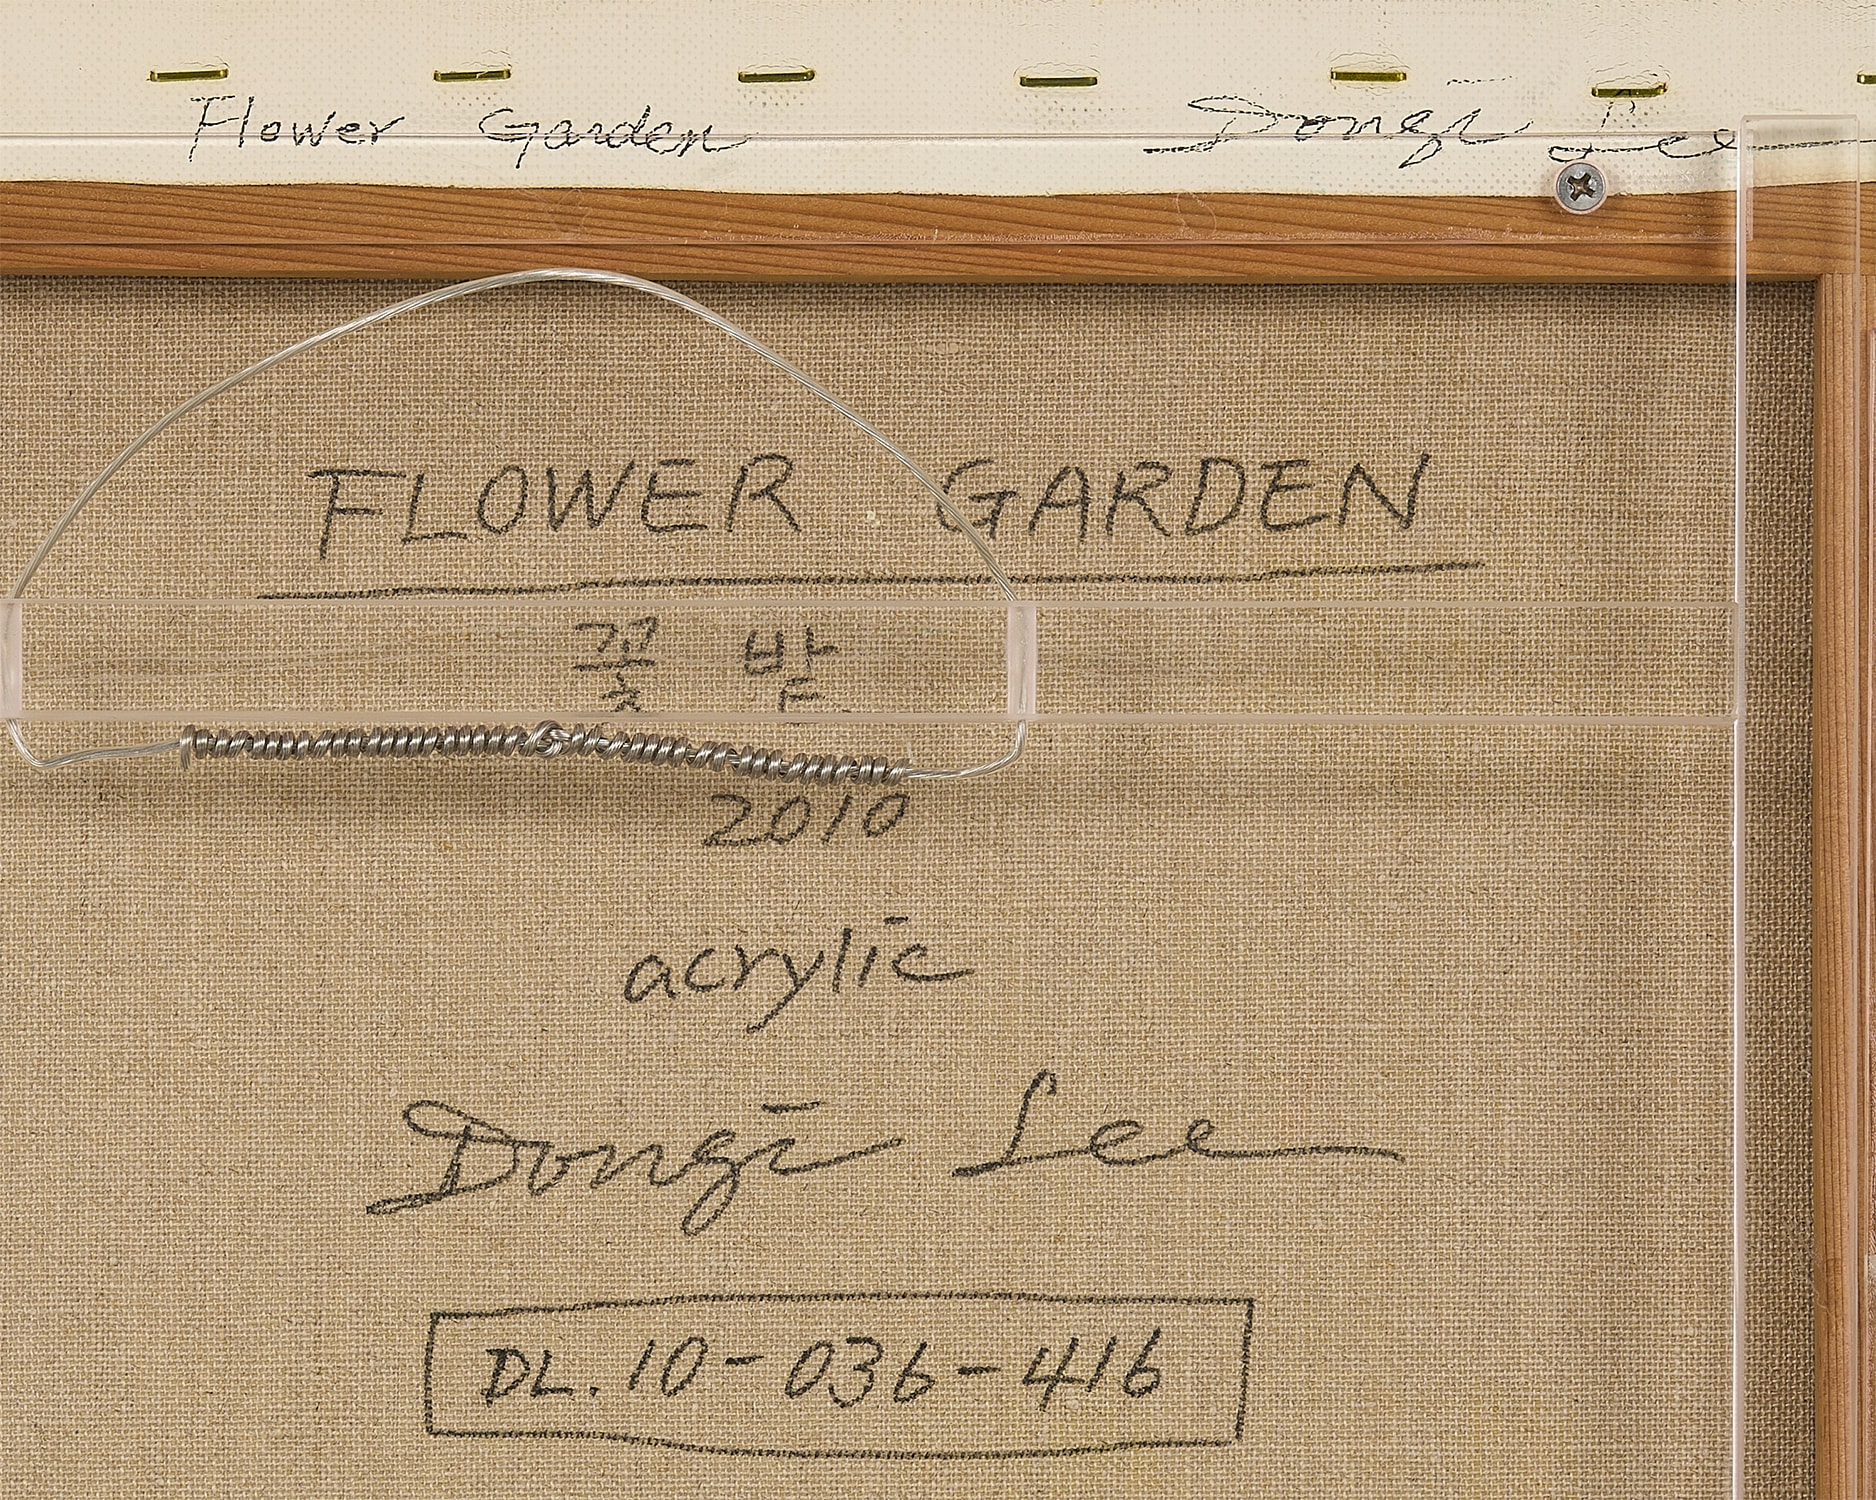 Flower Garden Dongi Lee
FLOWER GARDEN
꽃 밭
2010
acrylic
Dongi Lee
DL. 10-036-416